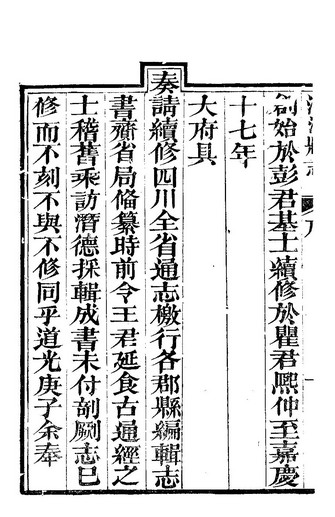 創始於彭君基士續修於瞿君熙仲至嘉慶
十七年
大府具
奏請續修四川全省通志檄行各郡縣編輯志
書齎省局備纂時前令王君延食古通經之
士稽舊乘訪潛德採輯成書未付剞劂志已
修而不刻不與不修同乎道光庚子余奉